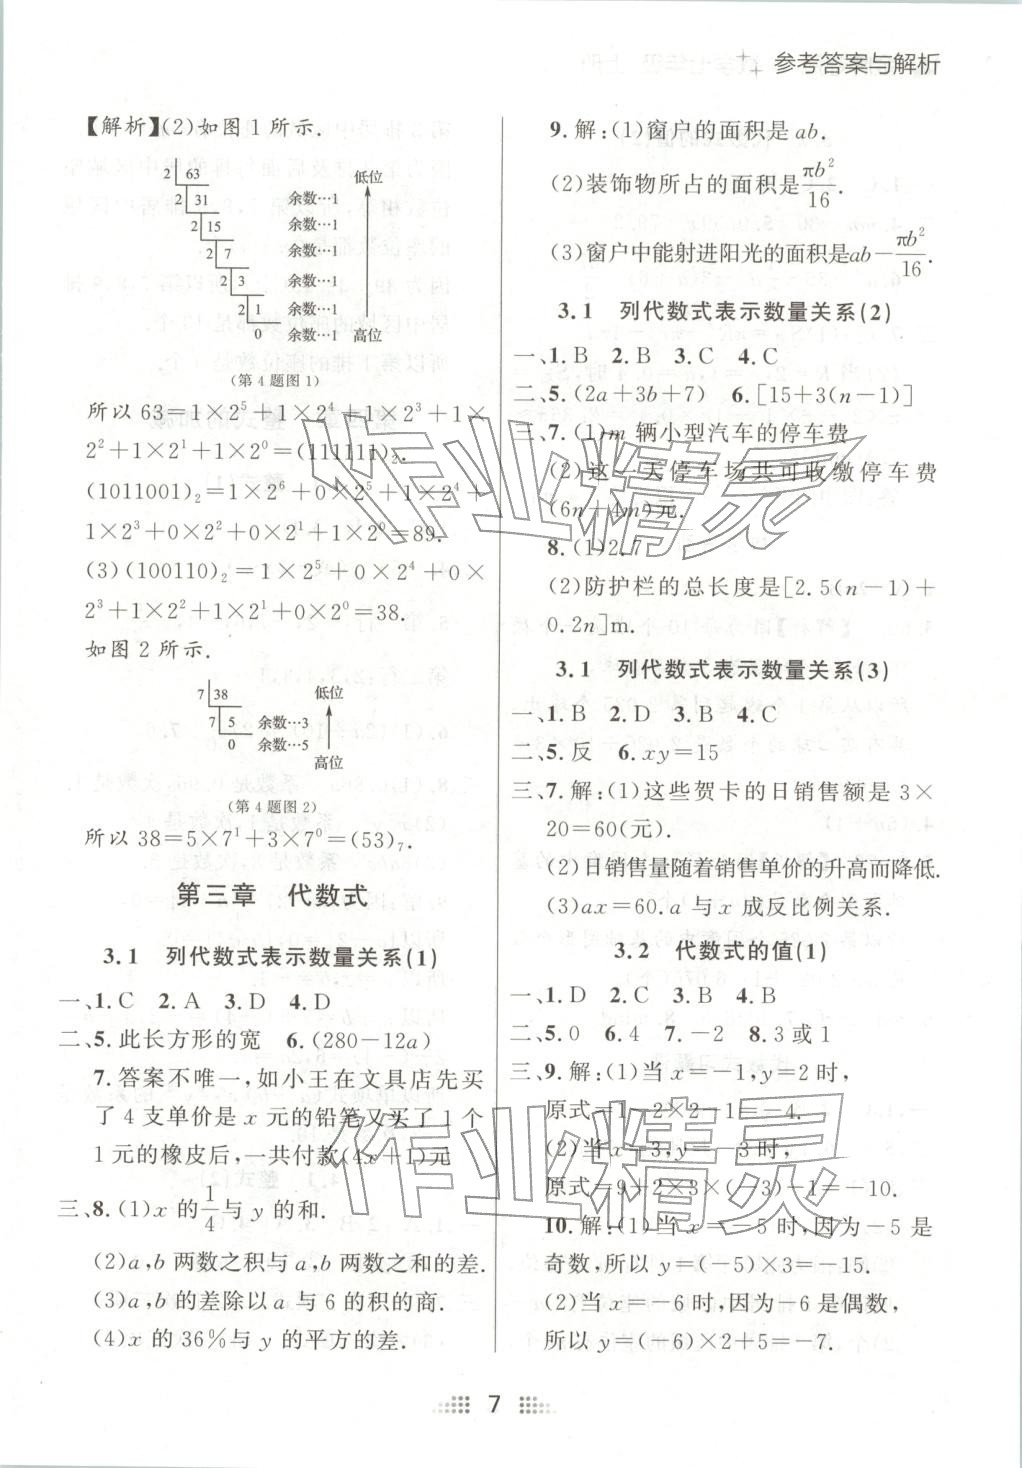 参考答案与解析
【解析】(2)如图1所示.
2 63 低位
2 31 余数…1
2 15 余数…1
2 7 余数…1
2 3 余数…1
2 1 余数…1
0 余数…1 高位
(第4题图1)
所以 63=1×2⁵+1×2⁴+1×2³+1×
2²+1×2¹+1×2⁰=(111111)₂.
(1011001)₂=1×2⁶+0×2⁵+1×2⁴+
1×2³+0×2²+0×2¹+1×2⁰=89.
(3)(100110)₂=1×2⁵+0×2⁴+0×
2³+1×2²+1×2¹+0×2⁰=38.
如图2所示.
7 38 低位
7 5 余数…3
0 余数…5
高位
(第4题图2)
所以 38=5×7¹+3×7⁰=(53)₇.
第三章 代数式
3.1 列代数式表示数量关系(1)
一、1.C 2.A 3.D 4.D
二、5.此长方形的宽 6.(280-12a)
7.答案不唯一,如小王在文具店先买
了4支单价是x元的铅笔又买了1个
1元的橡皮后,一共付款(4x+1)元
三、8.(1)x的1/4与y的和.
(2)a,b两数之积与a,b两数之和的差.
(3)a,b的差除以a与6的积的商.
(4)x的36%与y的平方的差.
9.解:(1)窗户的面积是ab.
(2)装饰物所占的面积是πb²/16.
(3)窗户中能射进阳光的面积是ab-πb²/16.
3.1 列代数式表示数量关系(2)
一、1.B 2.B 3.C 4.C
二、5.(2a+3b+7) 6.[15+3(n-1)]
三、7.(1)m辆小型汽车的停车费
(2)这一天停车场共可收缴停车费
(6n+4m)元.
8.(1)2.7
(2)防护栏的总长度是[2.5(n-1)+
0.2n]m.
3.1 列代数式表示数量关系(3)
一、1.B 2.D 3.B 4.C
二、5.反 6.xy=15
三、7.解:(1)这些贺卡的日销售额是3×
20=60(元).
(2)日销售量随着销售单价的升高而降低.
(3)ax=60.a与x成反比例关系.
3.2 代数式的值(1)
一、1.D 2.C 3.B 4.B
二、5.0 6.4 7.-2 8.3或1
三、9.解:(1)当x=-1,y=2时,
原式=1-2×2-1=-4.
(2)当x=-3,y=-3时,
原式=-9+2×3×(-3)-1=-10.
10.解:(1)当x=-5时,因为-5是
奇数,所以y=(-5)×3=-15.
(2)当x=-6时,因为-6是偶数,
所以y=(-6)×2+5=-7.
7
作业精灵
作业精灵